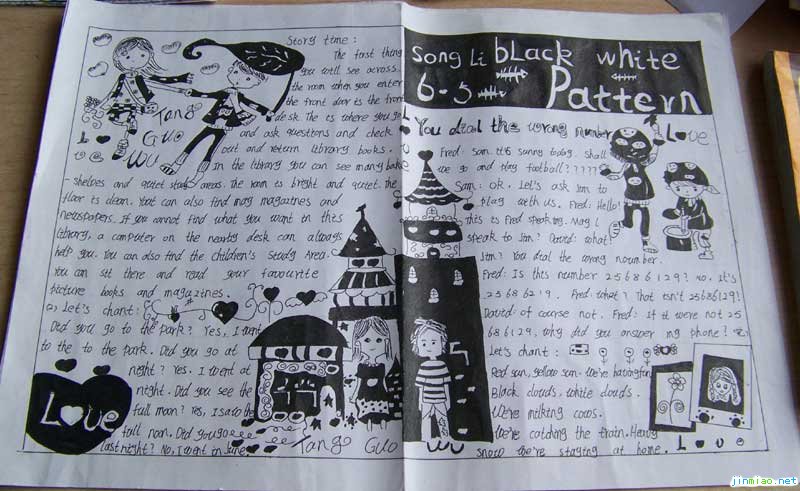 Story time:
The first thing
you will see across
the room when you enter
the front door is the front
desk. The is where you go
and ask questions and check
out and return library books.
In the library you can see many book
-shelves and quiet study areas. The room is bright and quiet. The
floor is clean. You can also find may magazines and
newspapers. If you cannot find what you want in this
library, a computer on the nearby desk can always
help you. You can also find the children's Study Area.
You can sit there and read your favourite
picture books and magazines.
Let's chant:
Did you go to the park? Yes, I went
to the to the park. Did you go at
night? Yes. I went at
night. Did you see the
full moon? Yes, I saw the
full noon. Did you go
last night? No, I went in June
Tang
Guo
Wu
Love
Love
Tang Guo Wu
Song Li black white
6-5 Pattern
You dial the wrong number
Love
Fred: Sam. It's sunny today. Shall
we go and play football?????
Sam: ok. Let's ask Jim to
play with us. Fred: Hello!
this is Fred speaking. May I
speak to Jim? David: what!
Jim? You dial the wrong noumber.
Fred: Is this number 25686129? no. It's
25686219. Fred: what? That isn't 25686129!
David: of course not. Fred: If it were not 25
686129, why did you answer my phone?
Let's chant:
Red sun, yellow sun. We're having fun
Black clouds, white clouds.
We're milking cows.
We're catching the train. Heavy
snow we're staying at home.
Love
jinmiao.net